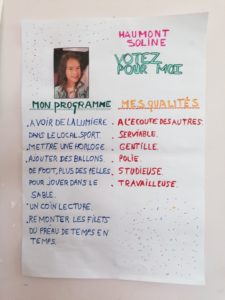 HAUMONT
SOLINE
VOTEZ
POUR MOI
MON PROGRAMME
. AVOIR DE LA LUMIERE
DANS LE LOCAL SPORT.
. METTRE UNE HORLOGE.
. AJOUTER DES BALLONS
DE FOOT, PLUS DES PELLES
POUR JOUER DANS LE
SABLE.
. UN COIN LECTURE.
. REMONTER LES FILETS
DU PREAU DE TEMPS EN
TEMPS.
MES QUALITÉS
. A L'ECOUTE DES AUTRES.
. SERVIABLE.
. GENTILLE.
. POLIE.
. STUDIEUSE.
. TRAVAILLEUSE.